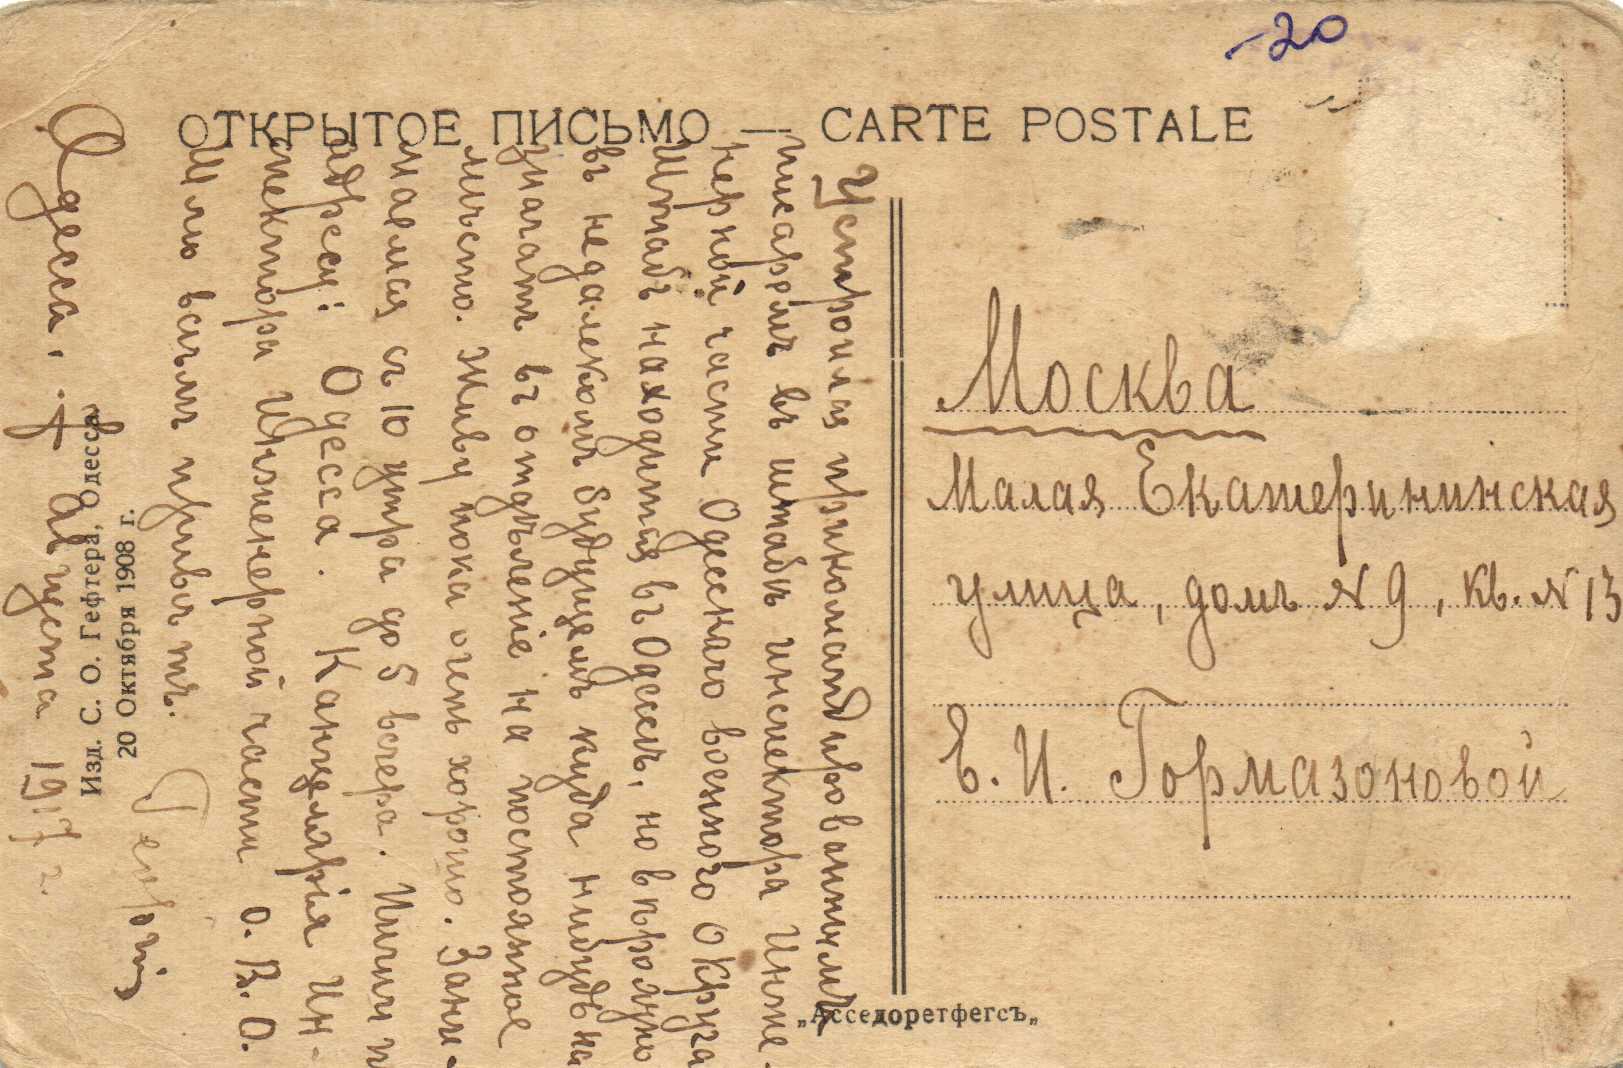 -20
ОТКРЫТОЕ ПИСЬМО — CARTE POSTALE
Устроился прикомандированнымъ
писаремъ въ штабъ инспектора Инже-
нерной части Одесскаго военного Округа
Штабъ находится въ Одессѣ, но въ
въ недалекомъ будущемъ куда нибудь на
значатъ въ отдѣленіе на постоянное
мѣсто. Живу пока очень хорошо. Зани-
маемся съ 10 утра до 5 вечера. Пиши п
адресу: Одесса. Канцелярія Ин-
спектора Инженерной части О. В. О.
Шлю всѣмъ привѣтъ.
Георгій
Одесса. 7 августа 1917 г.
Изд. С. О. Гефтера, Одесса
20 Октября 1908 г.
„Асседоретфегсъ„
Москва
Малая Екатерининская
улица, домъ № 9, кв. № 13
Е. И. Гормазоновой